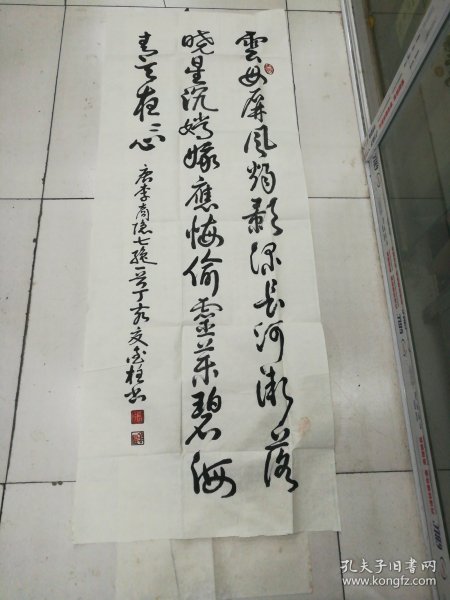 雲母屏风燭影深长河漸落
晓星沉嫦娥應悔偷靈药碧海
青天夜夜心
唐李商隐七绝一首丁亥夏
孔夫子旧书网
www.kongfz.com